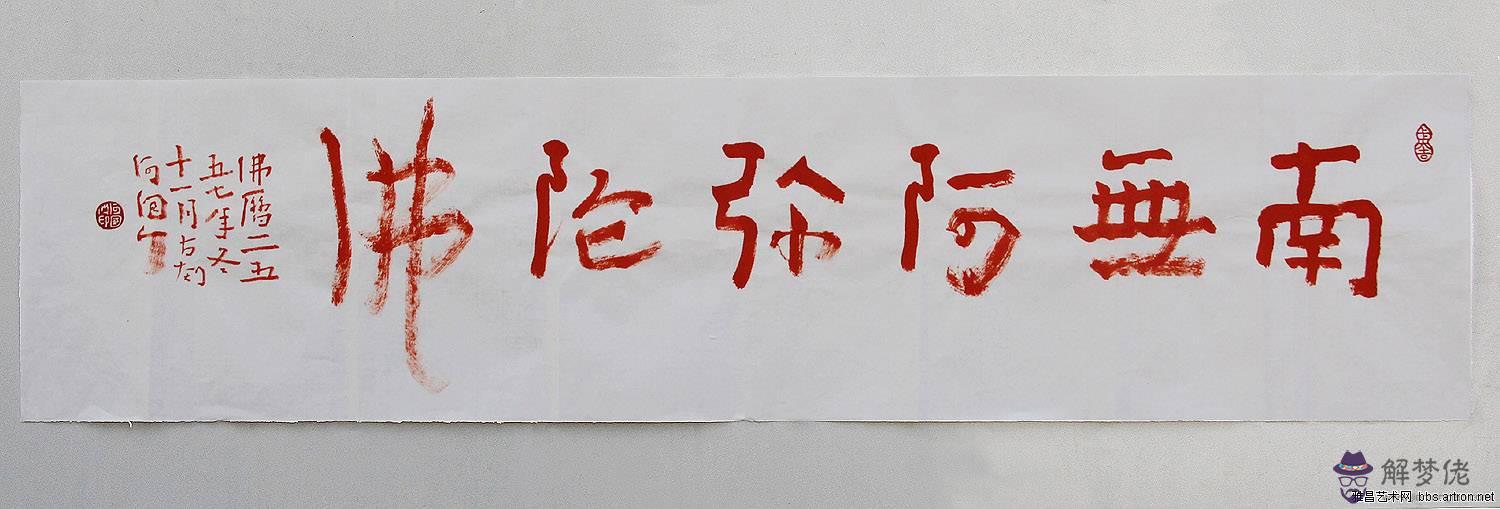 南無阿弥陀佛
佛曆二五
五七年冬
十一月古刹
何国
解梦佬
雅昌艺术网 bbs.artron.net